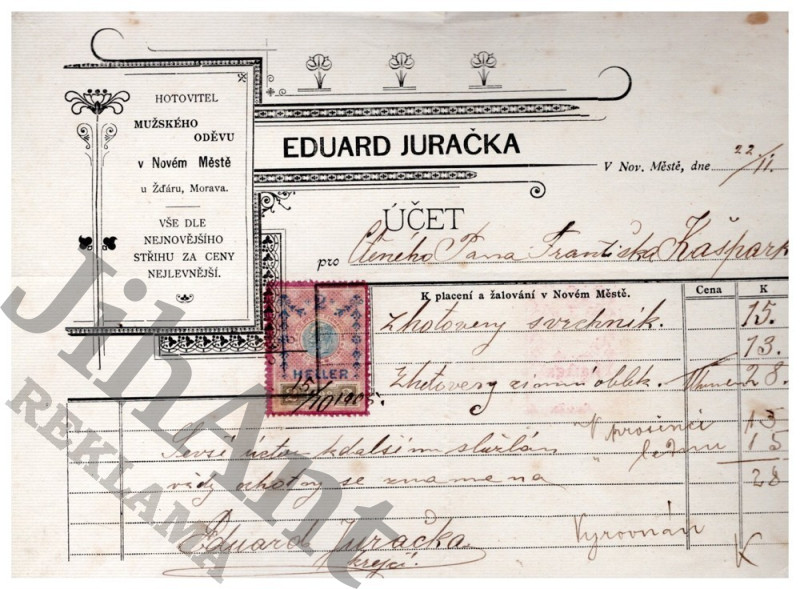 HOTOVITEL
MUŽSKÉHO
ODĚVU
v Novém Městě
u Žďáru, Morava.
VŠE DLE
NEJNOVĚJŠÍHO
STŘIHU ZA CENY
NEJLEVNĚJŠÍ.
EDUARD JURAČKA
V Nov. Městě, dne 22/II.
ÚČET
pro Ctěného Pana Františka Kašpark
K placení a žalování v Novém Městě. Cena K
Zhotovený svrchník. 15.
13.
Zhotovený zimní oblek. 28.
HELLER
15/10 1905.
V prosinci 13
k dalším službám " lednu 15
vždy ochotný se znamená 28
Eduard Juračka
krejčí.
Vyrovnán
JihAnt
REKLAMA